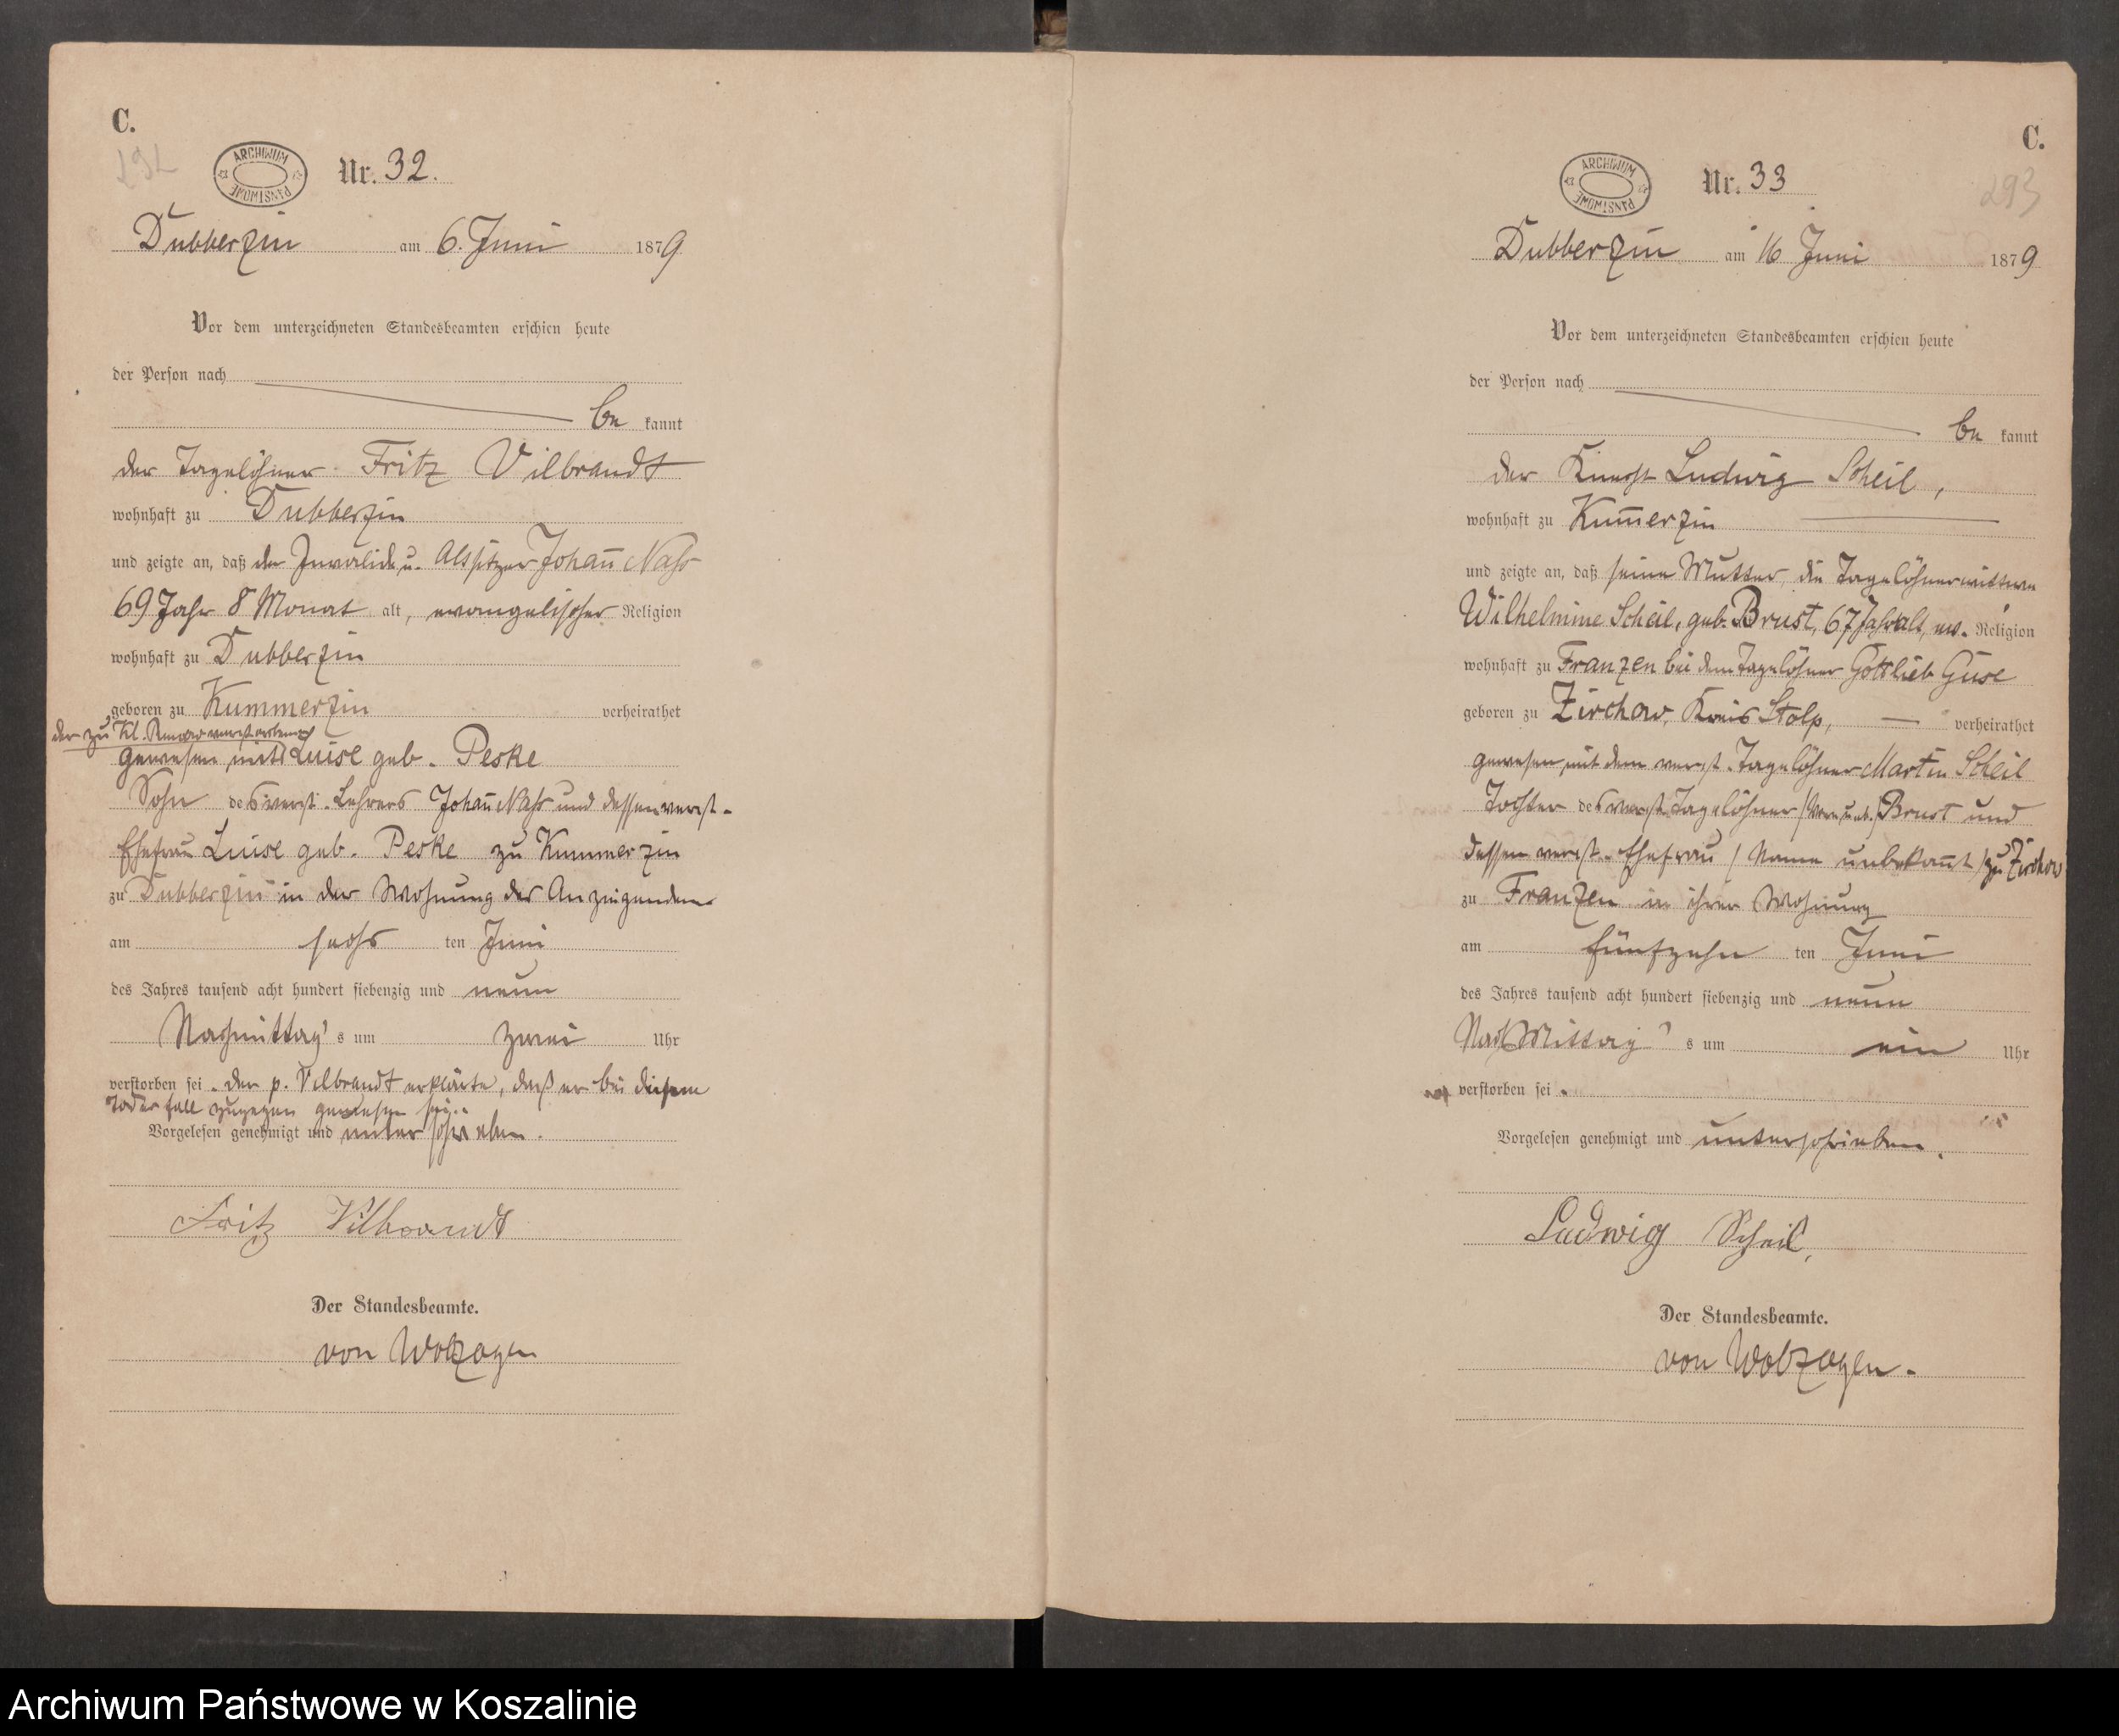 C.
ARCHIWUM PAŃSTWOWE
Nr. 32.
Dubberzin am 6. Juni 1879
Vor dem unterzeichneten Standesbeamten erschien heute
der Person nach
be kannt
der Tagelöhner Fritz Vilbrandt
wohnhaft zu Dubberzin
und zeigte an, daß der Invalide u. Altsitzer Johañ
69 Jahr 8 Monat alt, evangelischer Religion
wohnhaft zu Dubberzin
geboren zu Kummerzin verheirathet
der zu Kl. verstorbenen
gewesen mit Luise geb. Peske
Sohn des verst. Lehrers Johañ und dessen verst.
Ehefrau Luise geb. Peske zu Kummerzin
zu Dubberzin in der Wohnung des Anzeigenden
am sechs ten Juni
des Jahres tausend acht hundert siebenzig und neun
Nachmittag's um zwei Uhr
verstorben sei. der p. Vilbrandt erklärte, daß er bei diesem
Todesfall zugegen gewesen sei.
Vorgelesen genehmigt und unterschrieben.
Fritz Vilbrandt
Der Standesbeamte.
von Wolzogen
C.
ARCHIWUM PAŃSTWOWE
Nr. 33
293
Dubberzin am 16 Juni 1879
Vor dem unterzeichneten Standesbeamten erschien heute
der Person nach
be kannt
der Knecht Ludwig Scheil,
wohnhaft zu Kum̄erzin
und zeigte an, daß seine Mutter, die Tagelöhnerwittwe
Wilhelmine Scheil, geb. Brust, 67 Jahr alt, ev. Religion
wohnhaft zu Franzen bei dem Tagelöhner Gottlieb Guse
geboren zu Zirchow, Kreis Stolp, verheirathet
gewesen mit dem verst. Tagelöhner Martin Scheil
Tochter des verst. Tagelöhner Brust und
dessen verst. Ehefrau / Name unbekañt / zu Zirchow
zu Franzen in ihrer Wohnung
am fünfzehn ten Juni
des Jahres tausend acht hundert siebenzig und neun
NachMittag's um ein Uhr
verstorben sei.
Vorgelesen genehmigt und unterschrieben.
Ludwig Scheil,
Der Standesbeamte.
von Wolzogen.
Archiwum Państwowe w Koszalinie